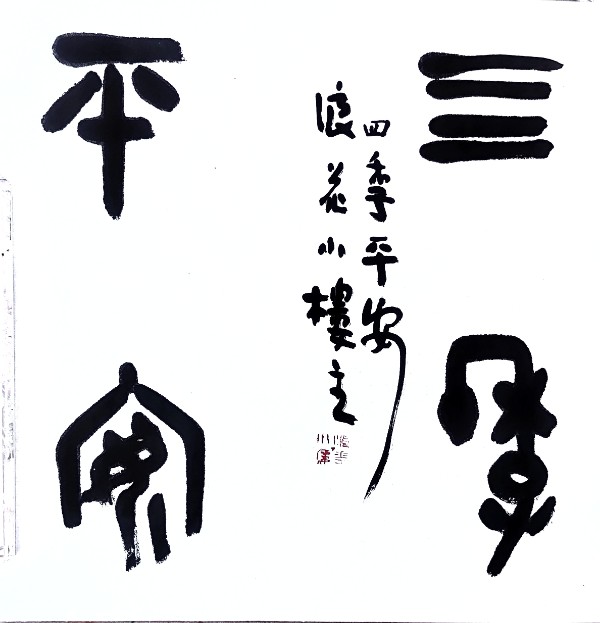 四季
平安
四季平安
浪花小樓主